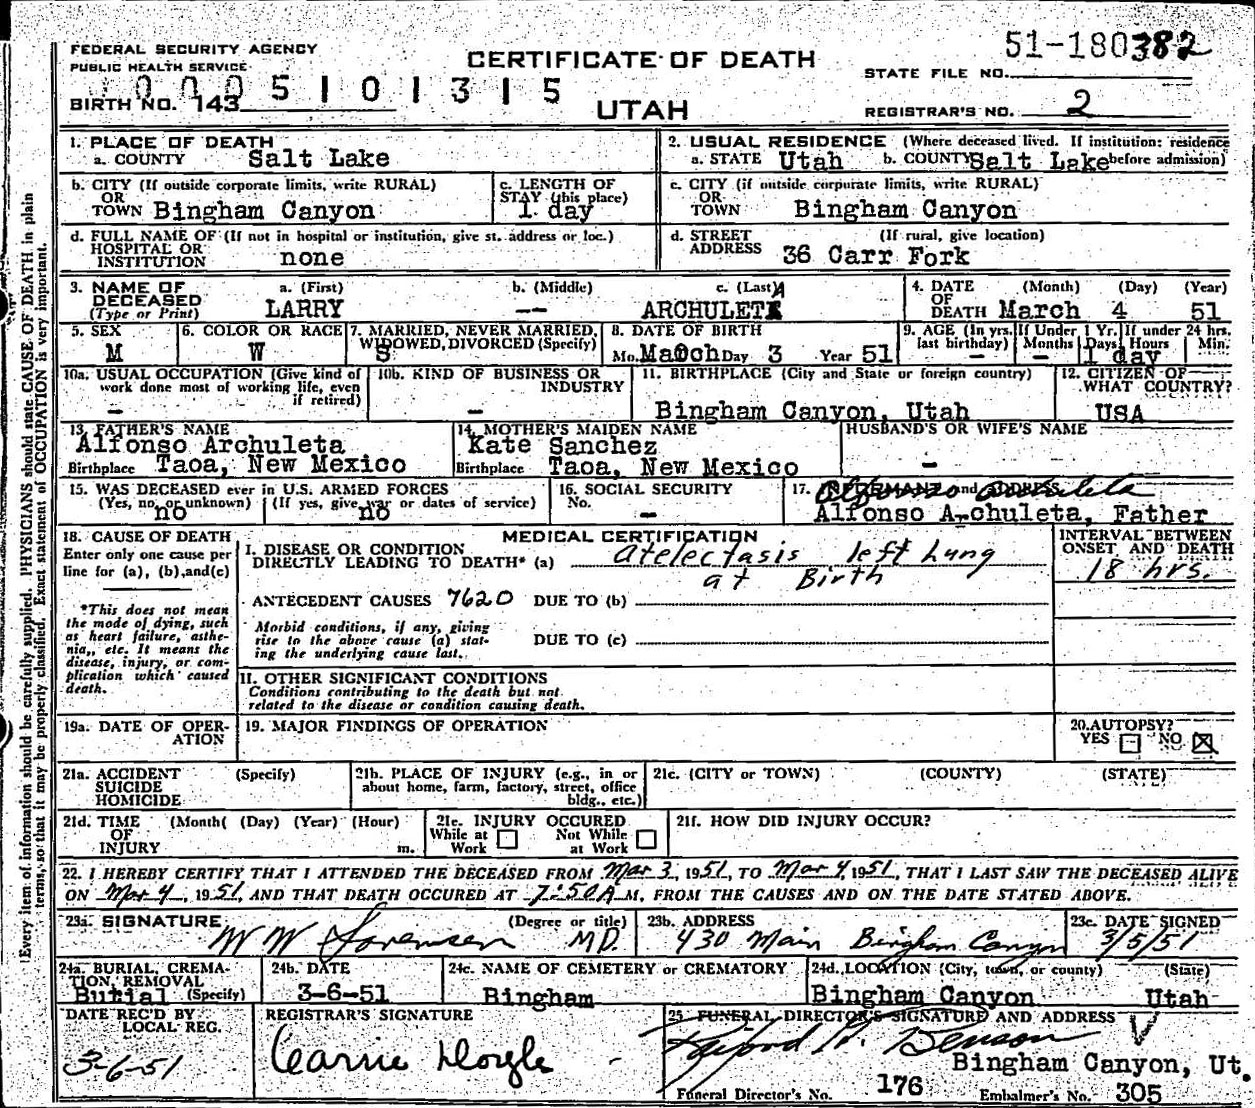 FEDERAL SECURITY AGENCY
PUBLIC HEALTH SERVICE
CERTIFICATE OF DEATH
UTAH
51-180382
STATE FILE NO.
0005101315
BIRTH NO. 143
REGISTRAR'S NO. 2
1. PLACE OF DEATH
a. COUNTY Salt Lake
2. USUAL RESIDENCE (Where deceased lived. If institution: residence
a. STATE Utah b. COUNTY Salt Lake before admission)
b. CITY (If outside corporate limits, write RURAL)
OR
TOWN Bingham Canyon
c. LENGTH OF
STAY (this place)
1 day
c. CITY (if outside corporate limits, write RURAL)
OR
TOWN Bingham Canyon
d. FULL NAME OF (If not in hospital or institution, give st. address or loc.)
HOSPITAL OR
INSTITUTION none
d. STREET (If rural, give location)
ADDRESS 36 Carr Fork
3. NAME OF
DECEASED
(Type or Print)
a. (First)
LARRY
b. (Middle)
--
c. (Last)
ARCHULETA
4. DATE (Month) (Day) (Year)
OF
DEATH March 4 51
5. SEX
M
6. COLOR OR RACE
W
7. MARRIED, NEVER MARRIED,
WIDOWED, DIVORCED (Specify)
S
8. DATE OF BIRTH
Mo. March Day 3 Year 51
9. AGE (In yrs. last birthday)
-
If Under 1 Yr.
Months Days
- 1 day
If under 24 hrs.
Hours Min.
10a. USUAL OCCUPATION (Give kind of
work done most of working life, even
if retired)
-
10b. KIND OF BUSINESS OR
INDUSTRY
-
11. BIRTHPLACE (City and State or foreign country)
Bingham Canyon, Utah
12. CITIZEN OF
WHAT COUNTRY?
USA
13. FATHER'S NAME
Alfonso Archuleta
Birthplace Taoa, New Mexico
14. MOTHER'S MAIDEN NAME
Kate Sanchez
Birthplace Taoa, New Mexico
HUSBAND'S OR WIFE'S NAME
-
15. WAS DECEASED ever in U.S. ARMED FORCES
(Yes, no, or unknown) (If yes, give war or dates of service)
no no
16. SOCIAL SECURITY
No.
-
17. INFORMANT and ADDRESS
Alfonso Archuleta
Alfonso Archuleta, Father
18. CAUSE OF DEATH
Enter only one cause per
line for (a), (b), and (c)
*This does not mean
the mode of dying, such
as heart failure, asthe-
nia,, etc. It means the
disease, injury, or com-
plication which caused
death.
MEDICAL CERTIFICATION
I. DISEASE OR CONDITION
DIRECTLY LEADING TO DEATH* (a) Atelectasis left Lung
at Birth
ANTECEDENT CAUSES 7620 DUE TO (b)
Morbid conditions, if any, giving
rise to the above cause (a) stat-
ing the underlying cause last.
DUE TO (c)
II. OTHER SIGNIFICANT CONDITIONS
Conditions contributing to the death but not
related to the disease or condition causing death.
INTERVAL BETWEEN
ONSET AND DEATH
18 hrs.
19a. DATE OF OPER-
ATION
19. MAJOR FINDINGS OF OPERATION
20. AUTOPSY?
YES NO
21a. ACCIDENT (Specify)
SUICIDE
HOMICIDE
21b. PLACE OF INJURY (e.g., in or
about home, farm, factory, street, office
bldg., etc.)
21c. (CITY or TOWN) (COUNTY) (STATE)
21d. TIME (Month( (Day) (Year) (Hour)
OF
INJURY m.
21e. INJURY OCCURED
While at Work Not While at Work
21f. HOW DID INJURY OCCUR?
22. I HEREBY CERTIFY THAT I ATTENDED THE DECEASED FROM Mar 3, 1951, TO Mar 4, 1951, THAT I LAST SAW THE DECEASED ALIVE
ON Mar 4, 1951, AND THAT DEATH OCCURED AT 7:50 A M, FROM THE CAUSES AND ON THE DATE STATED ABOVE.
23a. SIGNATURE (Degree or title)
W W Sorensen MD.
23b. ADDRESS
430 Main Bingham Canyon
23c. DATE SIGNED
3/5/51
24a. BURIAL, CREMA-
TION, REMOVAL
Burial (Specify)
24b. DATE
3-6-51
24c. NAME OF CEMETERY or CREMATORY
Bingham
24d. LOCATION (City, town, or county) (State)
Bingham Canyon Utah
DATE REC'D BY
LOCAL REG.
3-6-51
REGISTRAR'S SIGNATURE
Carrie Doyle
25. FUNERAL DIRECTOR'S SIGNATURE AND ADDRESS
Benson
Bingham Canyon, Ut.
Funeral Director's No. 176 Embalmer's No. 305
Every item of information should be carefully supplied. PHYSICIANS should state CAUSE OF DEATH in plain
terms, so that it may be properly classified. Exact statement of OCCUPATION is very important.